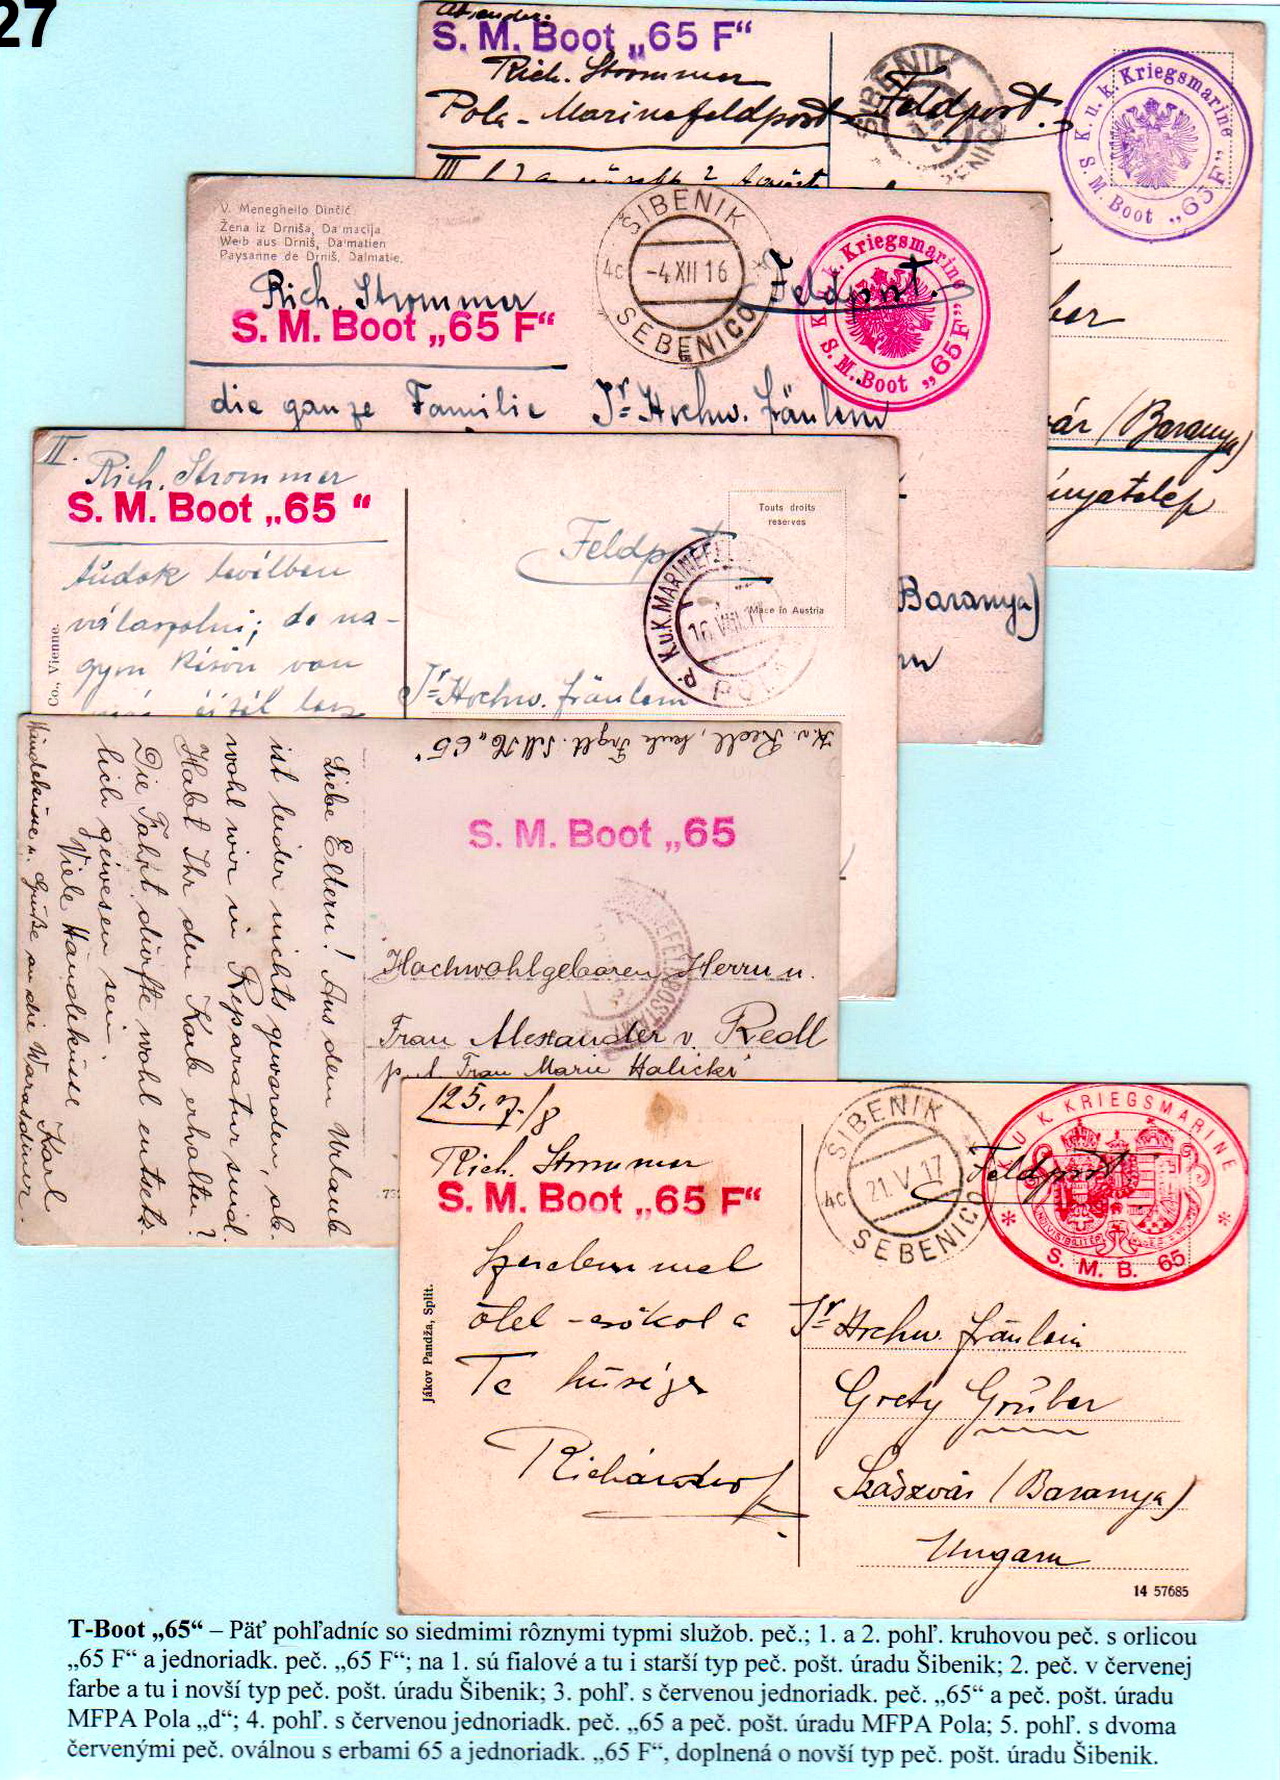 27
Absender:
S. M. Boot „65 F“
Rich. Strommer
Pola - Marinefeldpost
Feldpost.
SIBENIK
SEBENICO
K. u. k. Kriegsmarine
S. M. Boot „65 F“
V. Meneghello Dinčić
Žena iz Drniša, Dalmacija
Weib aus Drniš, Dalmatien
Paysanne de Drniš, Dalmatie.
Rich. Strommer
S. M. Boot „65 F“
SIBENIK
4c -4 XII 16 *
SEBENICO
Feldpost.
K. u. k. Kriegsmarine
S. M. Boot „65 F“
die ganze Familie
Hochw. Fräulein
ber
vár (Baranya)
nyatelep
II.
Rich. Strommer
S. M. Boot „65 “
Feldpost
Touts droits
reserves
Made in Austria
K.u.K. MARINEFELDPO
16 VIII 17
POLA
tudok levélben
válaszolni; de na-
gyon
Co., Vienne.
Hochw. Fräulein
(Baranya)
S. M. Boot „65
Liebe Eltern! Aus dem Urlaub
ist leider nichts geworden, ob-
wohl wir in Reparatur sind.
Habt Ihr den Korb erhalten?
Die Fahrt dürfte wohl entsetz-
lich gewesen sein.
Viele Handküsse Karl
Hochwohlgeboren Herrn u.
Frau Alexander v. Redl
Frau Marie Halicki
125. 7/8
Rich. Strommer
S. M. Boot „65 F“
SIBENIK
4c 21. V. 17 *
SEBENICO
Feldpost
K. U. K. KRIEGSMARINE
* S. M. B. 65 *
ölel - csókol a
Te hűséges
Richárdod
Jákov Pandža, Split.
Hochw. Fräulein
Grety Grüber
Szászvár (Baranya)
Ungarn
14 57685
T-Boot „65“ – Päť pohľadníc so siedmimi rôznymi typmi služob. peč.; 1. a 2. pohľ. kruhovou peč. s orlicou
„65 F“ a jednoriadk. peč. „65 F“; na 1. sú fialové a tu i starší typ peč. pošt. úradu Šibenik; 2. peč. v červenej
farbe a tu i novší typ peč. pošt. úradu Šibenik; 3. pohľ. s červenou jednoriadk. peč. „65“ a peč. pošt. úradu
MFPA Pola „d“; 4. pohľ. s červenou jednoriadk. peč. „65 a peč. pošt. úradu MFPA Pola; 5. pohľ. s dvoma
červenými peč. oválnou s erbami 65 a jednoriadk. „65 F“, doplnená o novší typ peč. pošt. úradu Šibenik.